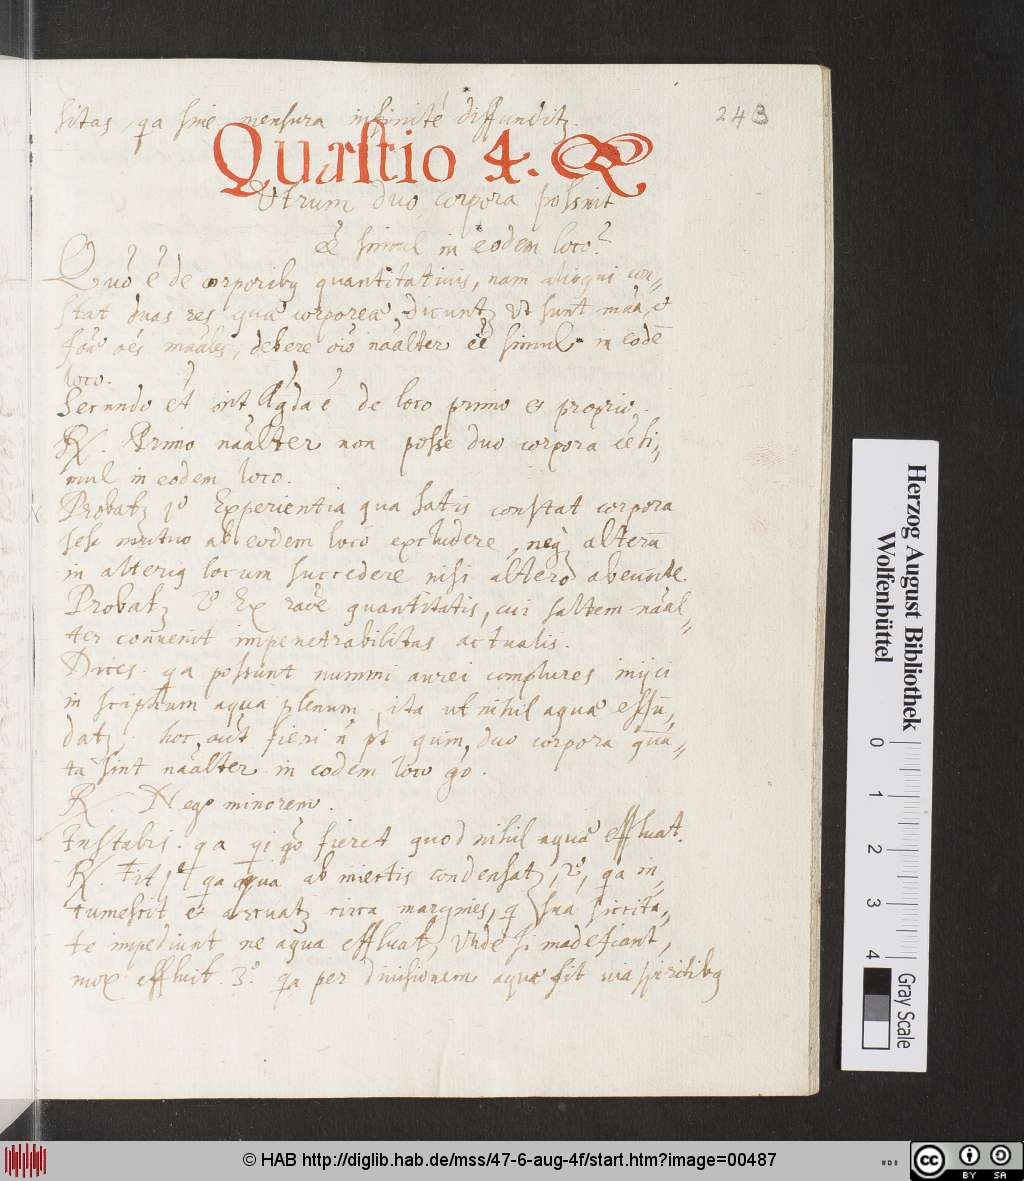 243
sitas, qa sine mensura infinité diffunditz.
Quæstio 4. R
Utrum duo corpora possint
eē simul in eodem loco?
Quō ē de corporibq quantitativis, nam alioqui con-
stat duas res quæ corporeæ dicuntz, ut sunt māa, et
foā oēs māales, debere oīo nāalter eē simul in eodē
loco.
Secundo de loco primo et proprio.
R. Primo nāalter non posse duo corpora eē si,,
mul in eodem loco.
Probatz 1º Experientia qua satis constat corpora
sese mutuo ab eodem loco excludere, neqz alterū
in alteriq locum succedere nisi altero abeunte.
Probatz 2º Ex raōe quantitatis, cui saltem nāal,,
ter convenit impenetrabilitas actualis.
Dices. qa possunt nummi aurei complures iniici
in sciphum aqua plenum, ita ut nihil aquæ effū,,
datz. hoc, aūt fieri ñ pt quin, duo corpora quā,,
ta sint nāalter in eodem loco go.
R. Nego minorem.
Instabis. qa qi qo fieret quod nihil aquæ effluat.
R. Fit 1º qa aqua ab iniectis condensatz, 2º, qa in,,
tumescit et arcuatz circa margines, q sua siccita,,
te impediunt ne aqua effluat, Unde si madefiant,
mox effluit. 3º. qa per divisionem aquæ fit via spiritibq
Herzog August Bibliothek
Wolfenbüttel
0 1 2 3 4
Gray Scale
© HAB http://diglib.hab.de/mss/47-6-aug-4f/start.htm?image=00487
cc BY SA